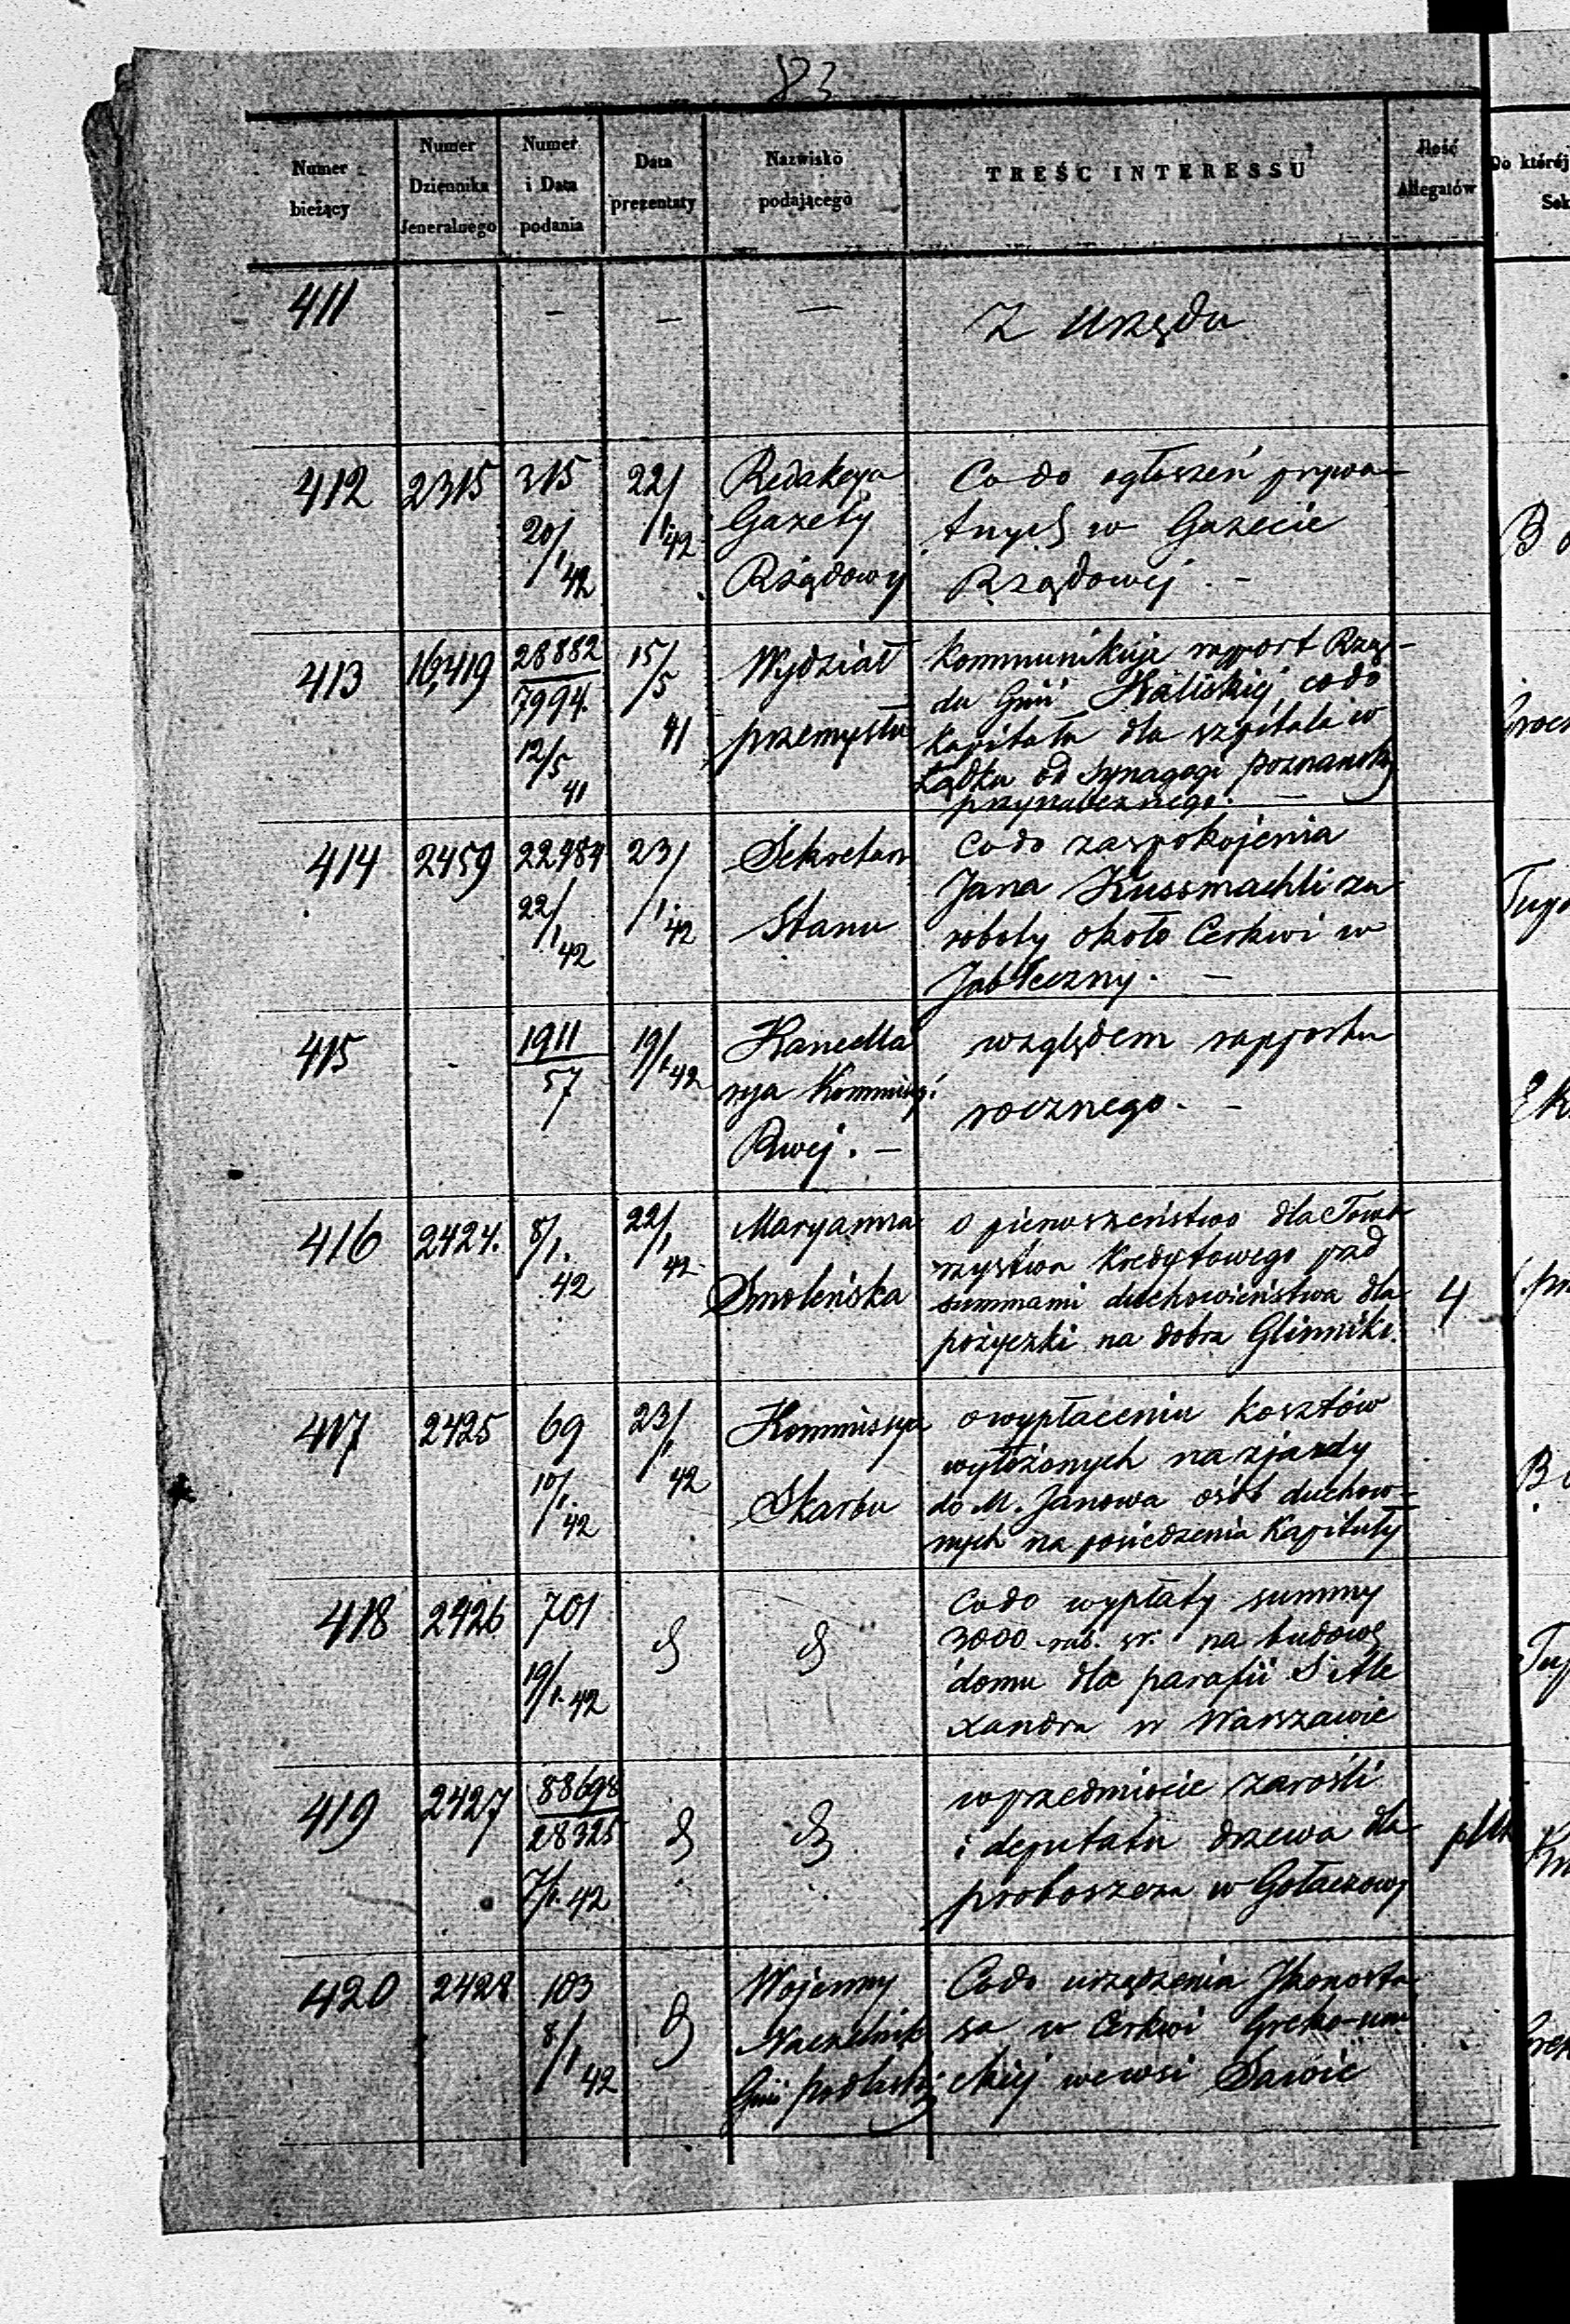 83
Numer bieżący
Numer Dziennika Jeneralnego
Numer i Data podania
Data prezentaty
Nazwisko podającego
TREŚĆ INTERESSU
Ilość Allegatów
Do której
Sek
411 – – – Z Urzędu
412 2315 315 22/ Redakcya Co do ogłoszeń prywa-
20/1 42 1 42 Gazety tnych w Gazecie
Rządowy Rządowej. –
413 16,419 28882 15/5 Wydział Kommunikuje rapport Rzą-
7994. 41 przemysłu du Gnii Kaliskiej co do
12/5 41 kapitału dla szpitala w
Lądku od Synagogi poznansky
przynależnego. –
414 2459 22984 23/ Sekretarz Co do zaspokojenia
22/1 42 1. 42 Stanu Jana Kussmachli za
roboty około Cerkwi w
Jabłeczny. –
415 1911 19/1. 42 Kancella względem rapportu
57 rya Kommissyi rocznego. –
Rwej. –
416 2424. 8/1. 22/1 Maryanna O pierwszeństwo dla Towa
42 42 Smoleńska rzystwa Kredytowego pad
summami duchowieństwa dla 4
pożyczki na dobra Glinniki.
417 2425 69 23/1 Kommissya o wypłaceniu kosztów
10/1. 42 42 Skarbu wyłożonych na zjazdy
do M. Janowa osób duchow-
nych na posiedzenia Kapituły
418 2426 701 Co do wypłaty summy
19/1. 42 3000 rub. sr. na budowę
domu dla parafii S. Ale
xandra w Warszawie
419 2427 88698 w przedmiocie zarośli
28325 i deputatu drzewa dla
7/1. 42 proboszcza w Gołaczowy
420 2428 103 Wojenny Co do urządzenia Jkonosta
8/1 42 Naczelnik sa w Cerkwi Greko-uni
Gnii podlaskij ckiej we wsi Sawie